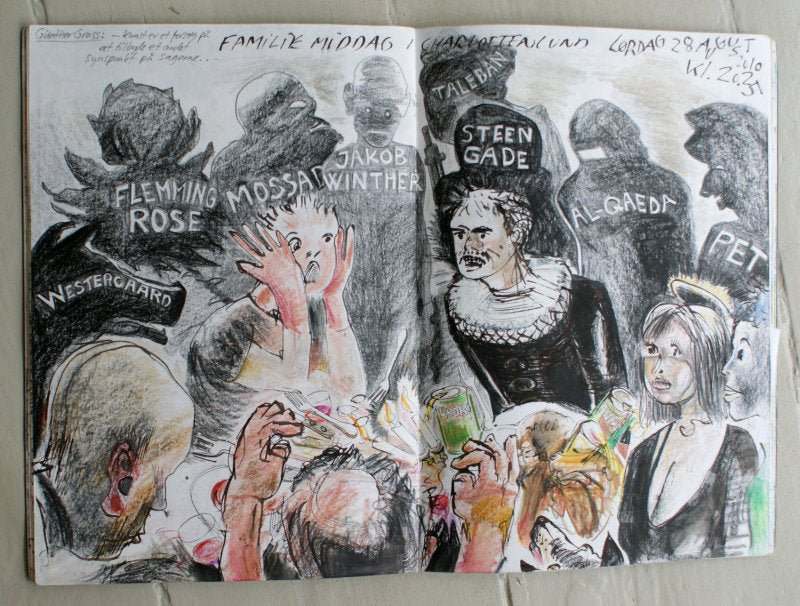 Günther Grass: – Kunst er et forsøg på
at tilbyde et andet
synspunkt på sagerne...
FAMILIE MIDDAG I CHARLOTTENLUND LØRDAG 28 AUGUST
2010
KL. 20.25
TALEBAN
STEEN
GADE
JAKOB
WINTHER
MOSSAD
FLEMMING
ROSE
AL-QAEDA
PET
WESTERGAARD